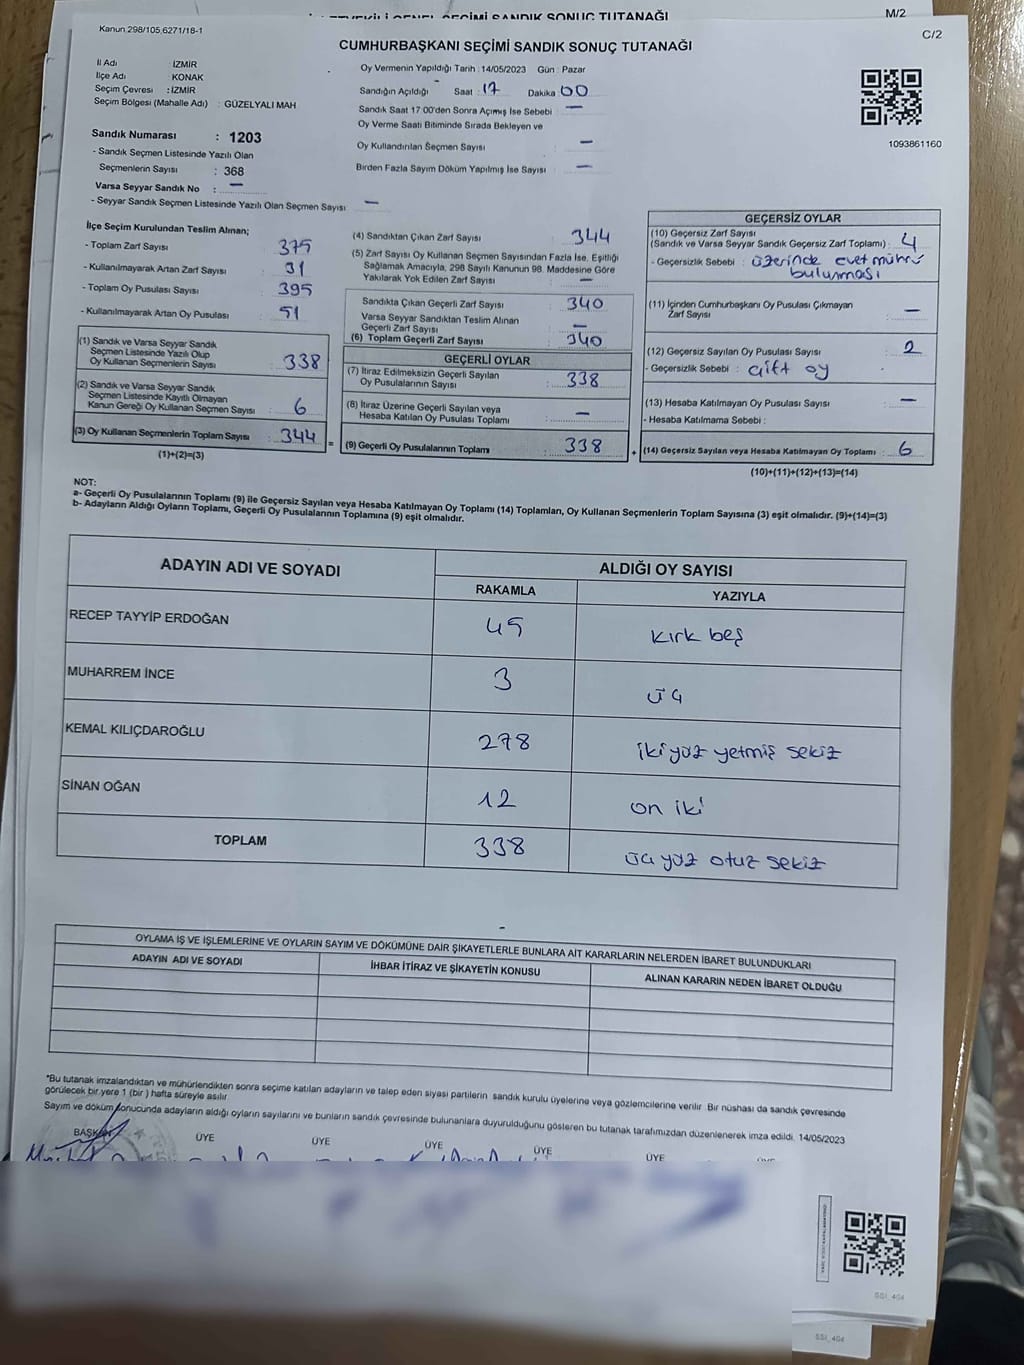 M/2
Kanun 298/105,6271/18-1
C/2
CUMHURBAŞKANI SEÇİMİ SANDIK SONUÇ TUTANAĞI
İl Adı İZMİR
İlçe Adı KONAK
Seçim Çevresi : İZMİR
Seçim Bölgesi (Mahalle Adı) : GÜZELYALI MAH
Oy Vermenin Yapıldığı Tarih : 14/05/2023 Gün : Pazar
Sandığın Açıldığı Saat : 17 Dakika : 00
Sandık Saat 17:00'den Sonra Açımış İse Sebebi : —
Oy Verme Saati Bitiminde Sırada Bekleyen ve
Oy Kullandırılan Seçmen Sayısı : —
Birden Fazla Sayım Döküm Yapılmış İse Sayısı : —
1093861160
Sandık Numarası : 1203
- Sandık Seçmen Listesinde Yazılı Olan
Seçmenlerin Sayısı : 368
Varsa Seyyar Sandık No : —
- Seyyar Sandık Seçmen Listesinde Yazılı Olan Seçmen Sayısı : —
İlçe Seçim Kurulundan Teslim Alınan;
- Toplam Zarf Sayısı : 375
- Kullanılmayarak Artan Zarf Sayısı : 31
- Toplam Oy Pusulası Sayısı : 395
- Kullanılmayarak Artan Oy Pusulası : 51
(1) Sandık ve Varsa Seyyar Sandık
Seçmen Listesinde Yazılı Olup
Oy Kullanan Seçmenlerin Sayısı : 338
(2) Sandık ve Varsa Seyyar Sandık
Seçmen Listesinde Kayıtlı Olmayan
Kanun Gereği Oy Kullanan Seçmen Sayısı : 6
(3) Oy Kullanan Seçmenlerin Toplam Sayısı : 344
(1)+(2)=(3)
(4) Sandıktan Çıkan Zarf Sayısı : 344
(5) Zarf Sayısı Oy Kullanan Seçmen Sayısından Fazla İse, Eşitliği
Sağlamak Amacıyla, 298 Sayılı Kanunun 98. Maddesine Göre
Yakılarak Yok Edilen Zarf Sayısı : —
Sandıkta Çıkan Geçerli Zarf Sayısı : 340
Varsa Seyyar Sandıktan Teslim Alınan
Geçerli Zarf Sayısı : —
(6) Toplam Geçerli Zarf Sayısı : 340
GEÇERLİ OYLAR
(7) İtiraz Edilmeksizin Geçerli Sayılan
Oy Pusulalarının Sayısı : 338
(8) İtiraz Üzerine Geçerli Sayılan veya
Hesaba Katılan Oy Pusulası Toplamı : —
= (9) Geçerli Oy Pusulalarının Toplamı : 338
GEÇERSİZ OYLAR
(10) Geçersiz Zarf Sayısı
(Sandık ve Varsa Seyyar Sandık Geçersiz Zarf Toplamı) : 4
- Geçersizlik Sebebi : üzerinde evet mührü
bulunması
(11) İçinden Cumhurbaşkanı Oy Pusulası Çıkmayan
Zarf Sayısı : —
(12) Geçersiz Sayılan Oy Pusulası Sayısı : 2
- Geçersizlik Sebebi : çift oy
(13) Hesaba Katılmayan Oy Pusulası Sayısı : —
- Hesaba Katılmama Sebebi :
+ (14) Geçersiz Sayılan veya Hesaba Katılmayan Oy Toplamı : 6
(10)+(11)+(12)+(13)=(14)
NOT:
a- Geçerli Oy Pusulalarının Toplamı (9) ile Geçersiz Sayılan veya Hesaba Katılmayan Oy Toplamı (14) Toplamları, Oy Kullanan Seçmenlerin Toplam Sayısına (3) eşit olmalıdır. (9)+(14)=(3)
b- Adayların Aldığı Oyların Toplamı, Geçerli Oy Pusulalarının Toplamına (9) eşit olmalıdır.
ADAYIN ADI VE SOYADI ALDIĞI OY SAYISI
RAKAMLA YAZIYLA
RECEP TAYYİP ERDOĞAN 45 kırk beş
MUHARREM İNCE 3 üç
KEMAL KILIÇDAROĞLU 278 iki yüz yetmiş sekiz
SİNAN OĞAN 12 on iki
TOPLAM 338 üç yüz otuz sekiz
OYLAMA İŞ VE İŞLEMLERİNE VE OYLARIN SAYIM VE DÖKÜMÜNE DAİR ŞİKAYETLERLE BUNLARA AİT KARARLARIN NELERDEN İBARET BULUNDUKLARI
ADAYIN ADI VE SOYADI İHBAR İTİRAZ VE ŞİKAYETİN KONUSU ALINAN KARARIN NEDEN İBARET OLDUĞU
*Bu tutanak imzalandıktan ve mühürlendikten sonra seçime katılan adayların ve talep eden siyasi partilerin sandık kurulu üyelerine veya gözlemcilerine verilir. Bir nüshası da sandık çevresinde
görülecek bir yere 1 (bir) hafta süreyle asılır.
Sayım ve döküm sonucunda adayların aldığı oyların sayılarını ve bunların sandık çevresinde bulunanlara duyurulduğunu gösteren bu tutanak tarafımızdan düzenlenerek imza edildi. 14/05/2023
BAŞKAN ÜYE ÜYE ÜYE ÜYE ÜYE
SSI_404
SSI_404